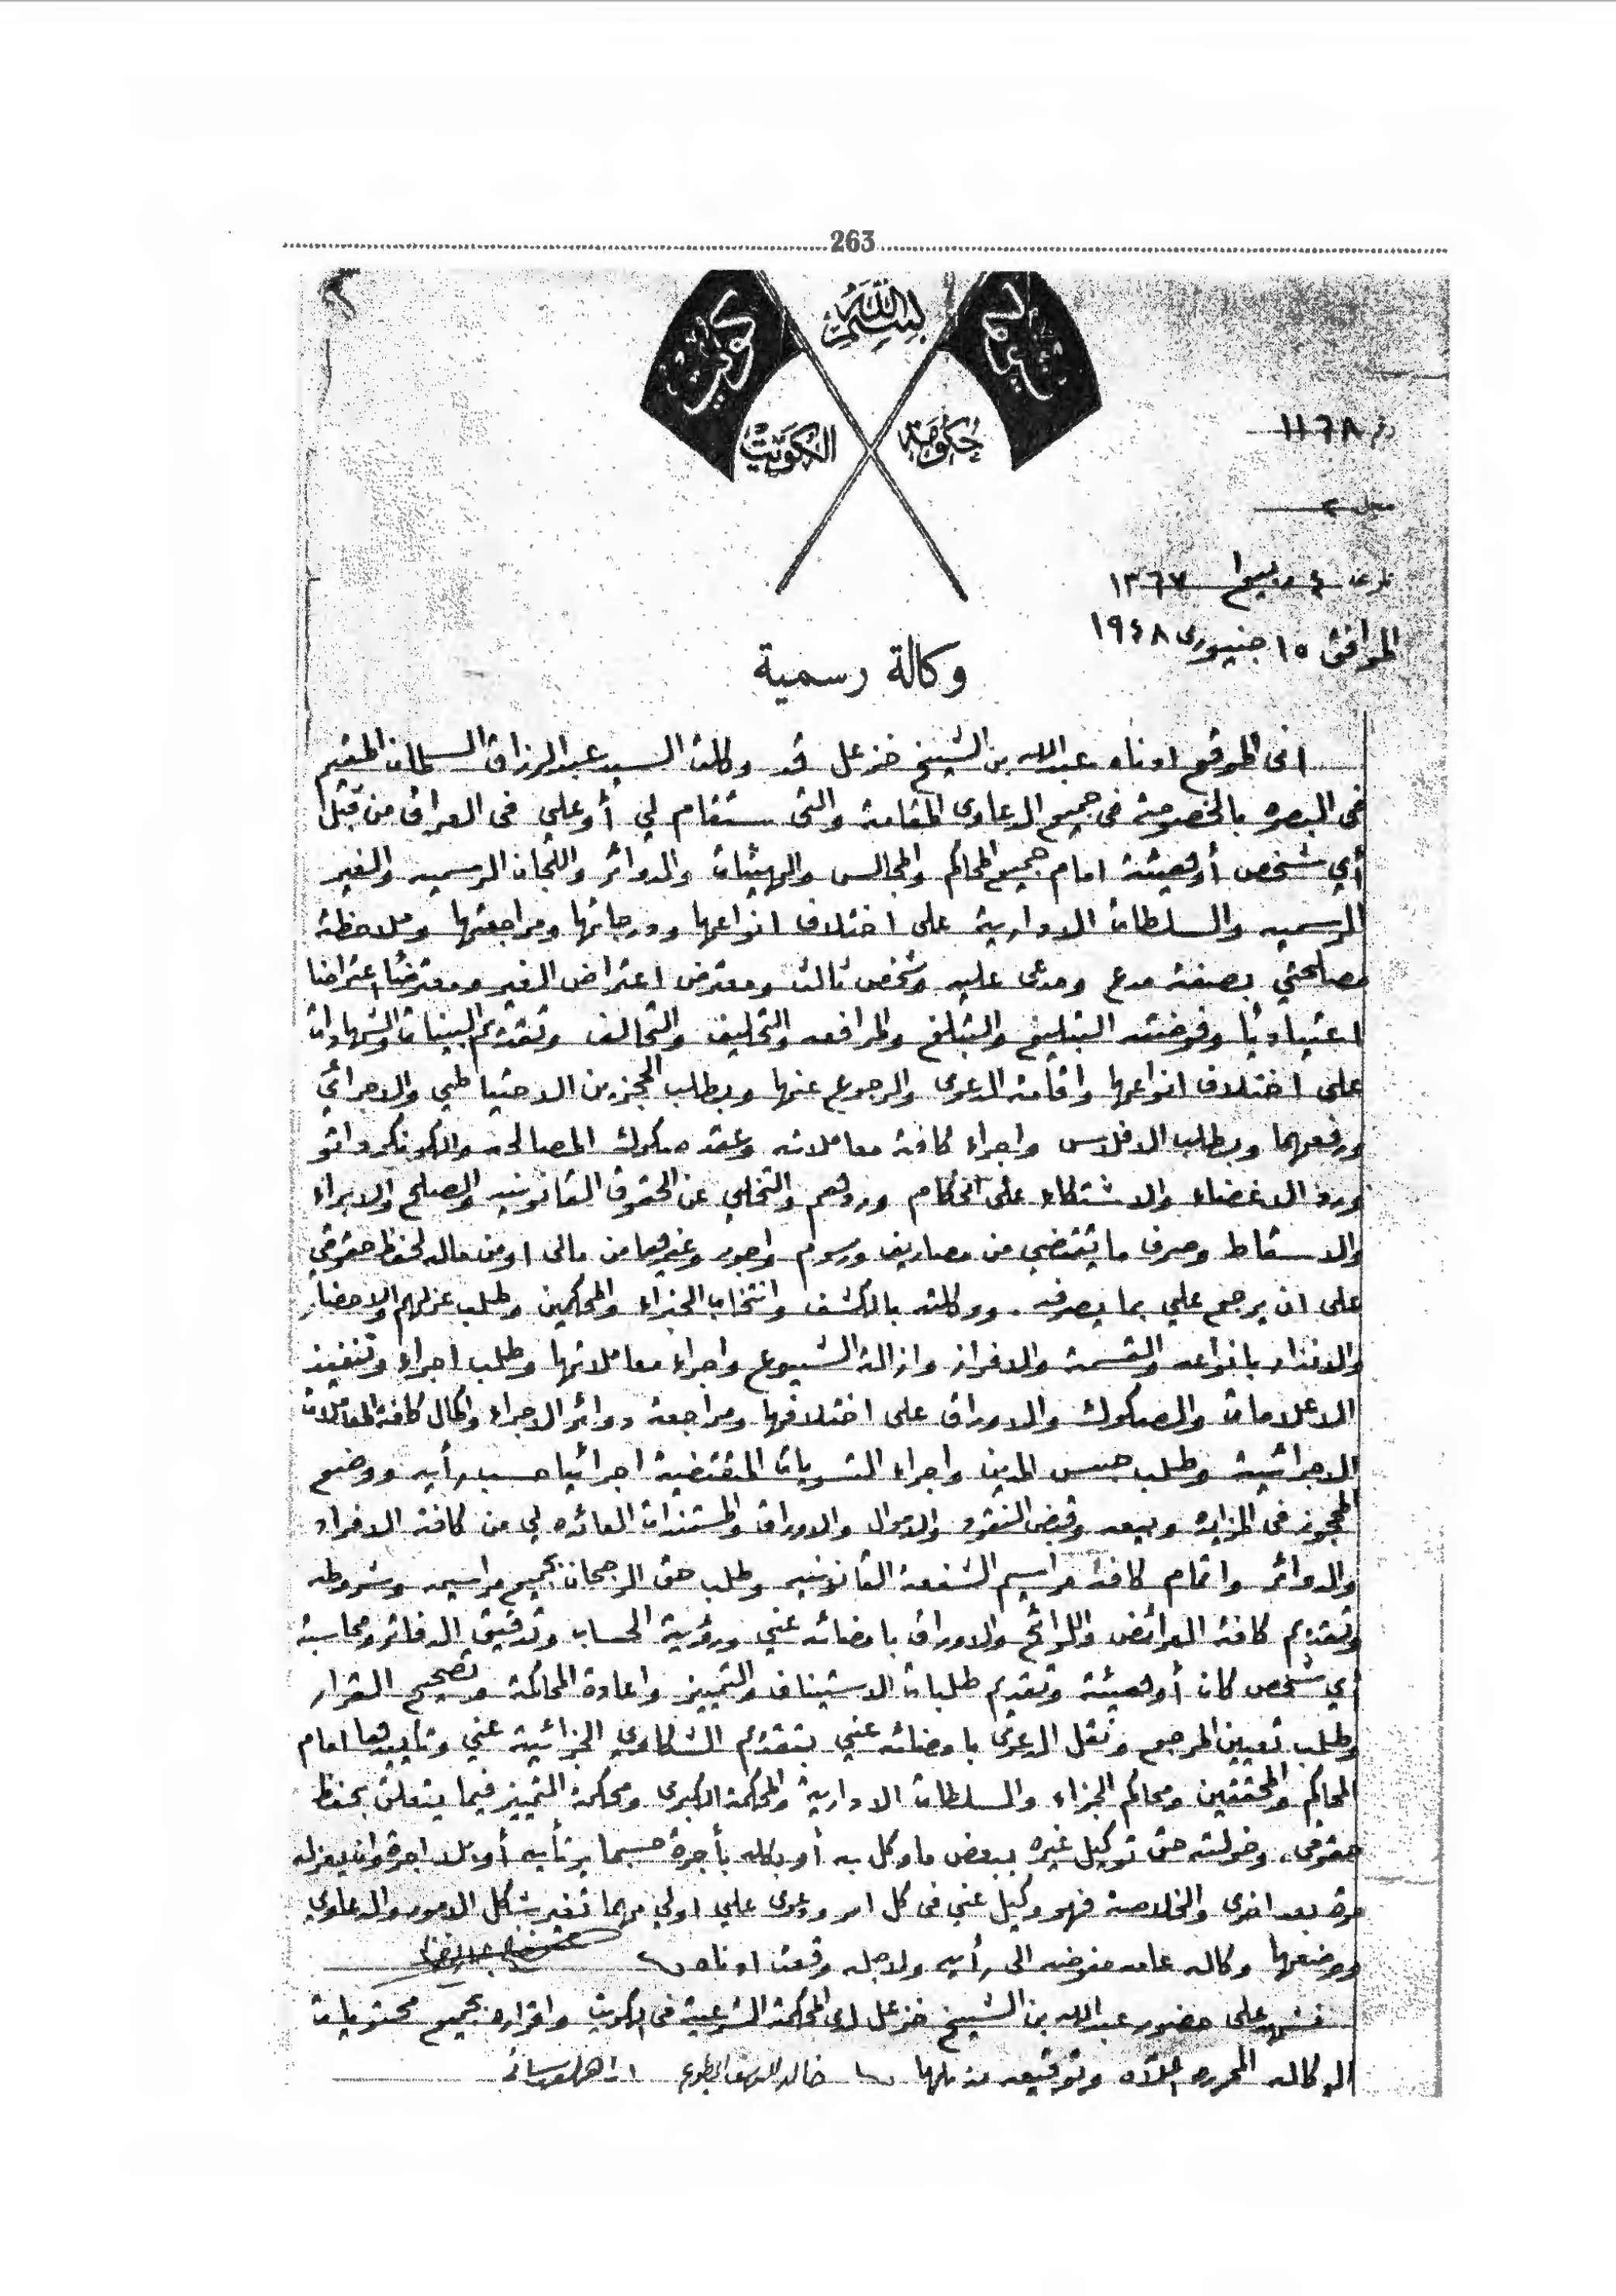 263
بسم الله
كويت
حكومة
الكويت
نمرة ١١٦٨
سجل ٢
تاريخ ٤ ربيع ١ ١٣٦٧
الموافق ١٥ جنيوري ١٩٤٨
وكالة رسمية
اني الموقع ادناه عبدالله بن الشيخ خزعل قد وكلت السيد عبدالرزاق السلمان المقيم
في البصره بالخصومة في جميع الدعاوى المقامة والتي ستقام لي أو علي في العراق من قبل
أي شخص أو هيئة امام جميع المحاكم والمجالس والهيئات والدوائر واللجان الرسميه والغير
الرسميه والسلطات الادارية على اختلاف انواعها ودرجاتها ومراجعتها وملاحظة
مصلحتي بصفة مدع ومدعى عليه وشخص ثالث ومعترض اعتراض الغير ومعترضاً اعتراضا
اعتيادياً وفوضته التبليغ والتبلغ والمرافعه والتحليف والتحالف وتقديم البينات والشهادات
على اختلاف انواعها واقامة الدعوى والرجوع عنها وبطلب الحجزين الاحتياطي والاجرائي
ورفعهما وبطلب الافلاس واجراء كافة معاملاته وعقد صكوك المصالحه والكونكرداتو
ورد الاعضاء والاشتكاء على الحكام وردهم والتخلي عن الحقوق القانونيه والصلح والابراء
والاسقاط وصرف ما يقتضي من مصاريف ورسوم واجور وغيرها من مالي او من ماله لحفظ حقوقي
على ان يرجع علي بما يصرفه . ووكلته بالكشف وانتخاب الخبراء والمحكمين وطلب عزلهم والاحضار
والانذار بانواعه والقسمة والافراز وازالة الشيوع واجراء معاملاتها وطلب اجراء وتنفيذ
الاعلامات والصكوك والاوراق على اختلافها ومراجعة دوائر الاجراء واكمال كافة المعاملات
الاجرائية وطلب حبس المدين واجراء التسويات المقتضية اجرائيا حسب رأيه ووضع
المحجوز في المزايده وبيعه وقبض النقود والاموال والاوراق والمستندات العائده لي من كافة الافراد
والدوائر واتمام كافة مراسيم الشفعة القانونيه وطلب حق الرجحان بجميع مراسيمه وشروطه
وتقديم كافة العرائض واللوائح والاوراق بامضائه عني ورؤية الحساب وتدقيق الدفاتر ومحاسبة
أي شخص كان أو هيئة وتقديم طلبات الاستيناف والتمييز واعادة المحاكمة وتصحيح القرار
وطلب تعيين المرجع ونقل الدعوى بامضائه عني بتقديم الشكاوي الجزائية عني وتاييدها امام
المحاكم والمحققين ومحاكم الجزاء والسلطات الادارية والمحكمة الكبرى ومحكمة التمييز فيما يتعلق بحفظ
حقوقي . وخولته حق توكيل غيره ببعض ما وكل به أو بكله بأجرة حسبما يرتأيه أو بلا اجرة وان يعزله
مرة بعد اخرى والخلاصة فهو وكيل عني في كل امر ودعوى علي او لي مهما تغيرت كل الامور والدعاوي
ووضعها وكاله عامه مفوضه الى رأيه ولاجله وقعت ادناه
نشهد على حضور عبدالله بن الشيخ خزعل لدى المحكمة الشرعية في الكويت واقراره بجميع محتويات
الوكاله المحرره اعلاه وتوقيعه ذيلها خالد اليوسف المطوع